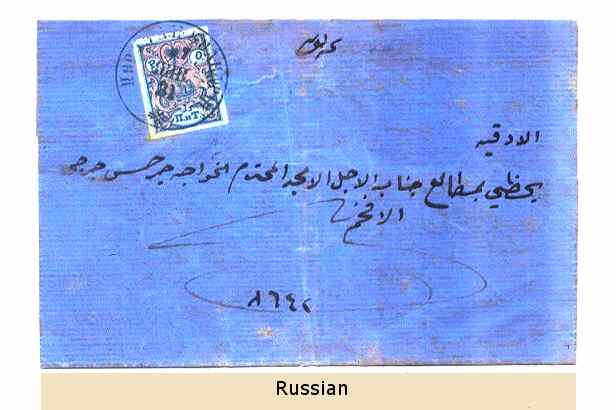 الادقيه
يحظي بمطالع جناب الاجل الامجد المحترم الخواجه جرجس جرجي
الافخم
٨٦٤٢
Russian